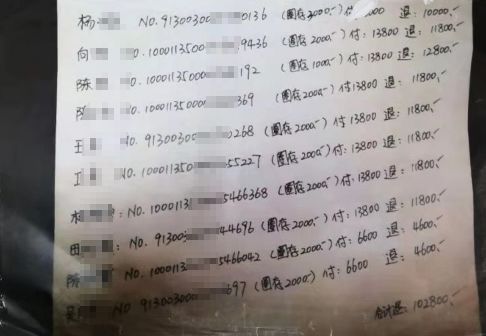 杨 NO. 91300300 0136 (圈存2000,-) 付 000 退: 10000,-
向 0. 1000113500 9436 (圈存2000,-) 付: 13800 退: 11800,-
陈 0. 1000113500 192 (圈存1000,-) 付: 13800 退: 12800,-
陈 0. 10001135000 369 (圈存2000,-) 付13800 退: 11800,-
王 NO. 91300300 0268 (圈存2000,-) 付: 13800 退: 11800,-
NO. 1000113500 55227 (圈存2000,-) 付: 13800 退: 11800,-
: NO. 1000113 5466368 (圈存2000,-) 付: 13800 退: 11800,-
田 NO. 913003 44696 (圈存2000,-) 付: 13800 退: 11800,-
陈 NO. 1000113 5466042 (圈存2000,-) 付: 6600 退: 4600,-
NO 91300300 697 (圈存2000,-) 付: 6600 退: 4600,-
合计退: 102800,-